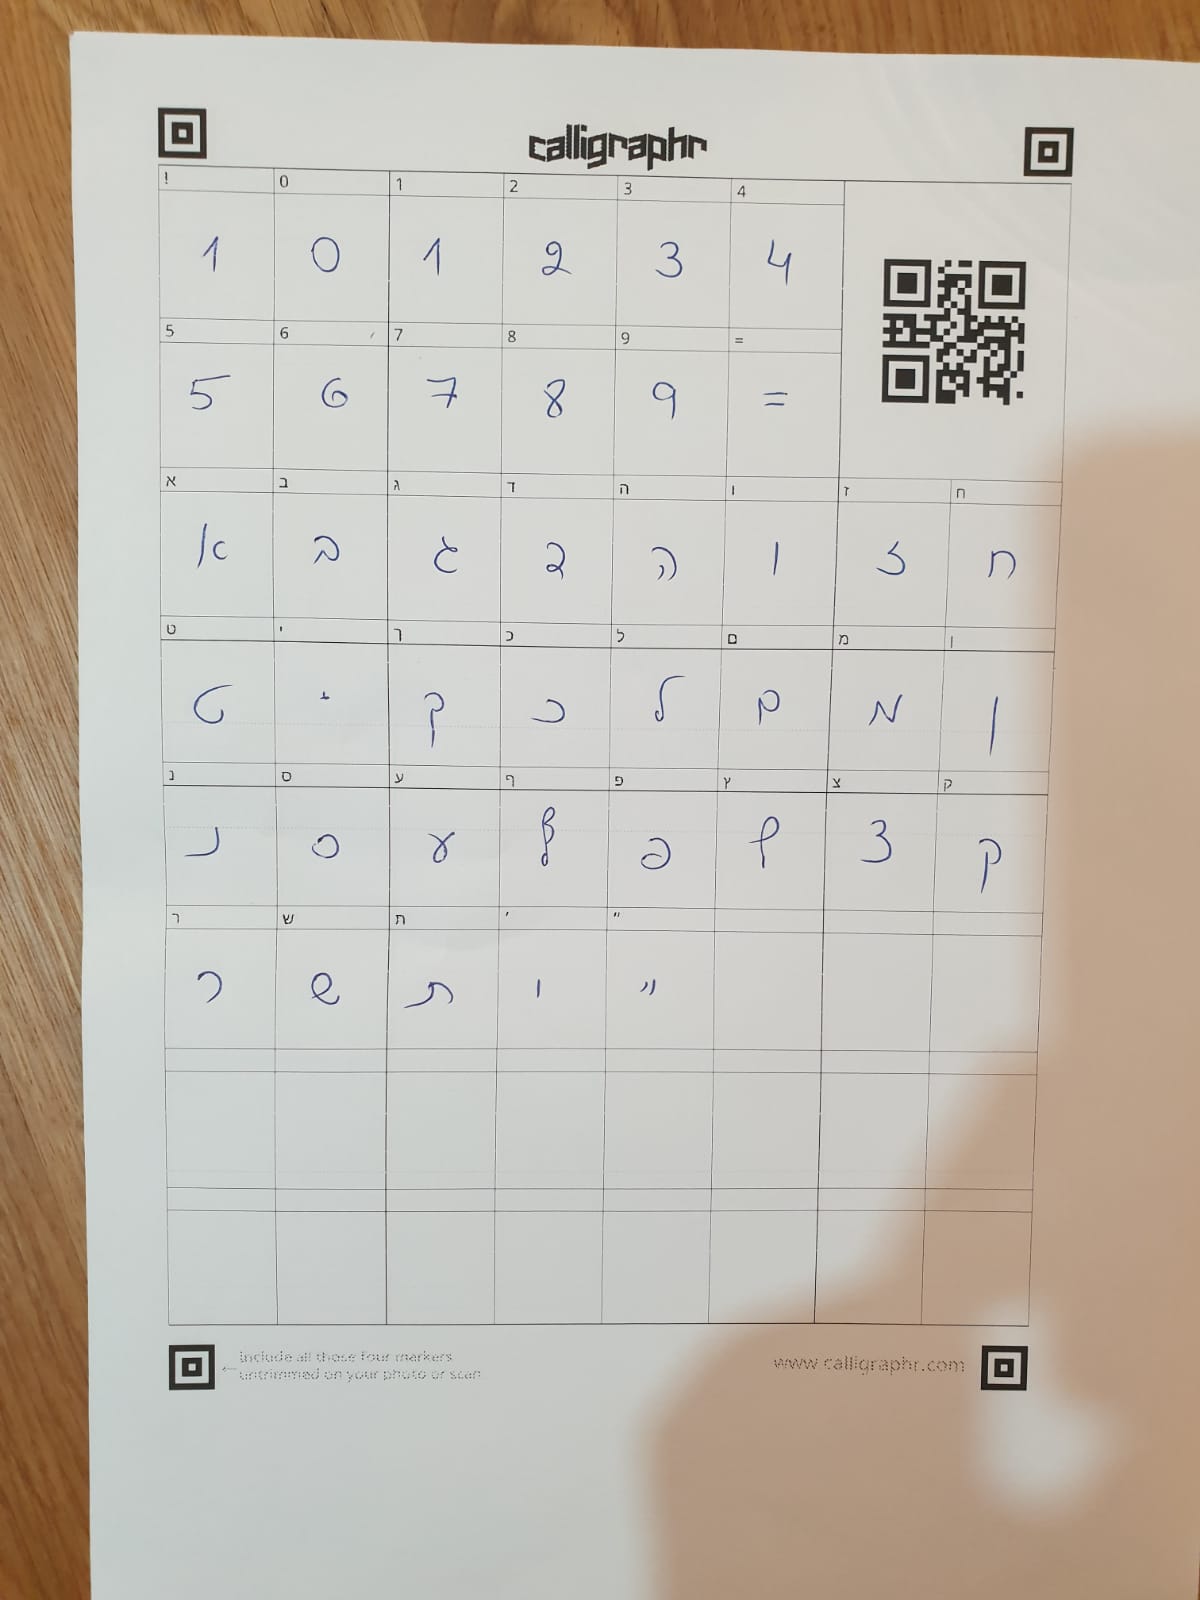 calligraphr
! 0 1 2 3 4
1 0 1 2 3 4
5 6 7 8 9 =
5 6 7 8 9 =
א ב ג ד ה ו ז ח
א ב ג ד ה ו ז ח
ט י ך כ ל ם מ ן
ט י ך כ ל ם מ ן
נ ס ע ף פ ץ צ ק
נ ס ע ף פ ץ צ ק
ר ש ת ׳ ״
ר ש ת ׳ ״
Include all those four markers
← untrimmed on your photo or scan
www.calligraphr.com